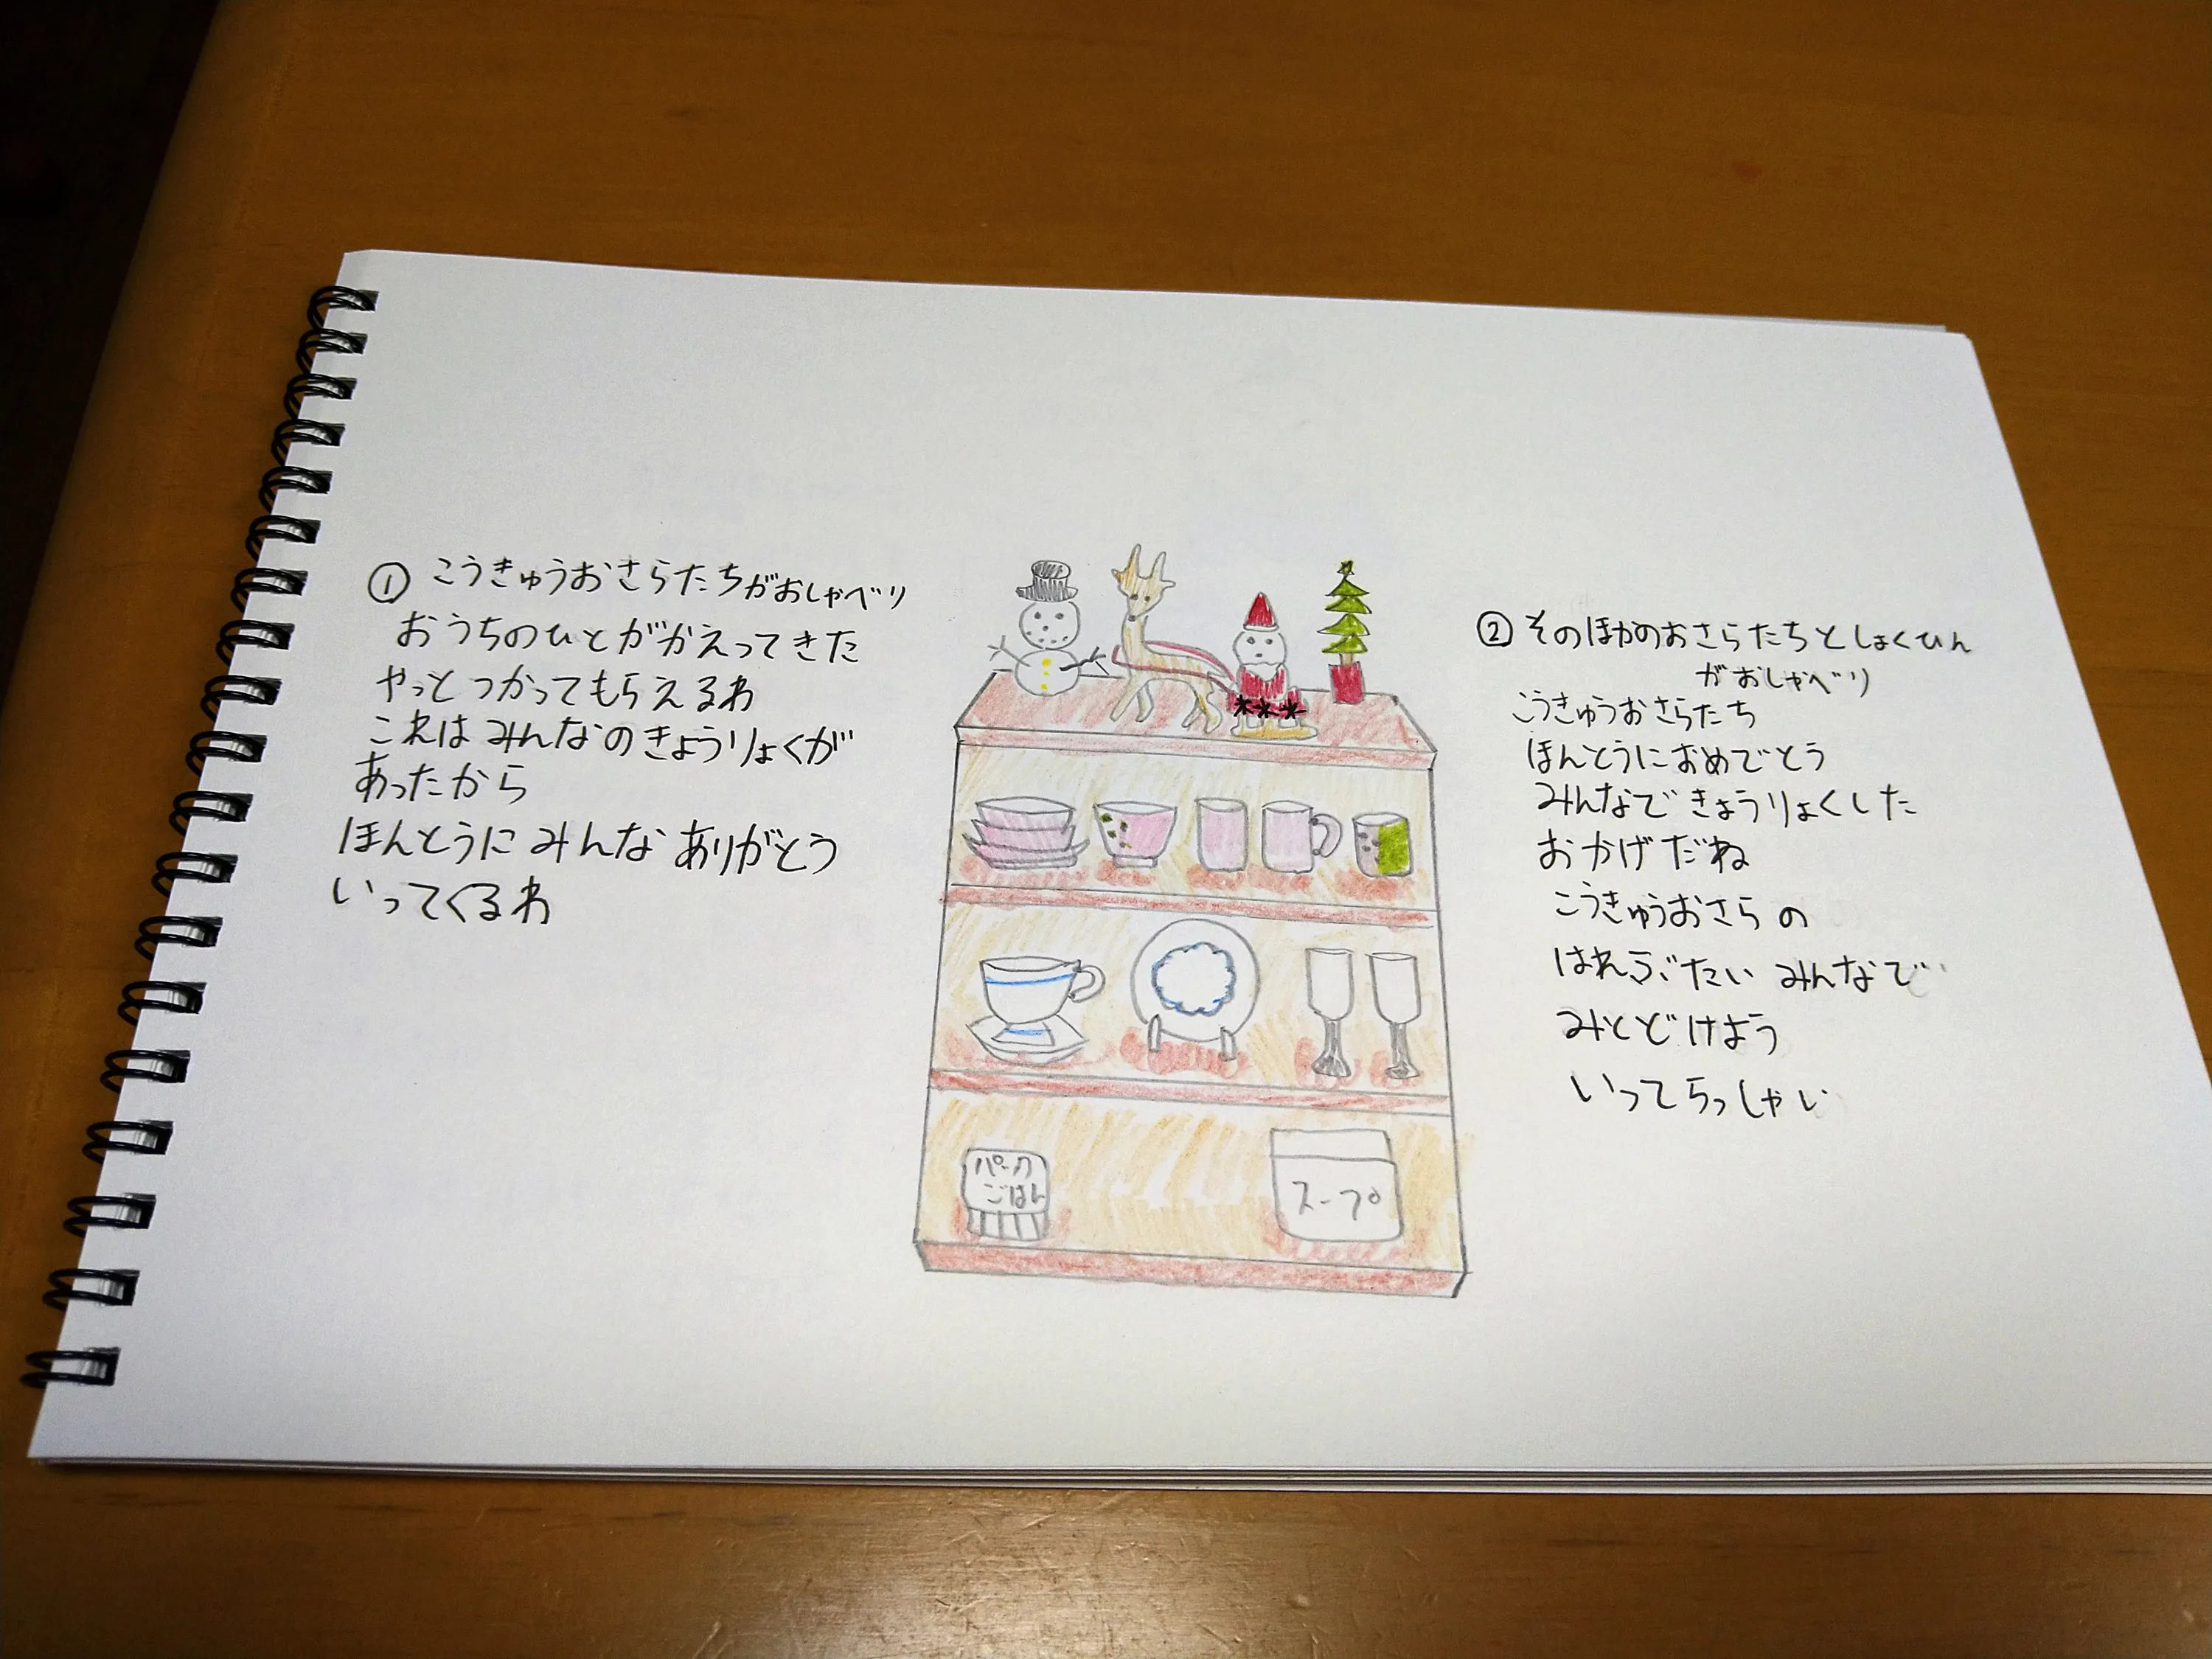 ① こうきゅうおさらたちがおしゃべり
おうちのひとがかえってきた
やっとつかってもらえるわ
これはみんなのきょうりょくが
あったから
ほんとうに みんな ありがとう
いってくるわ
② そのほかのおさらたちとしょくひん
がおしゃべり
こうきゅうおさらたち
ほんとうにおめでとう
みんなできょうりょくした
おかげだね
こうきゅうおさらの
はれぶたい みんなで
みとどけよう
いってらっしゃい
パック
ごはん
スープ